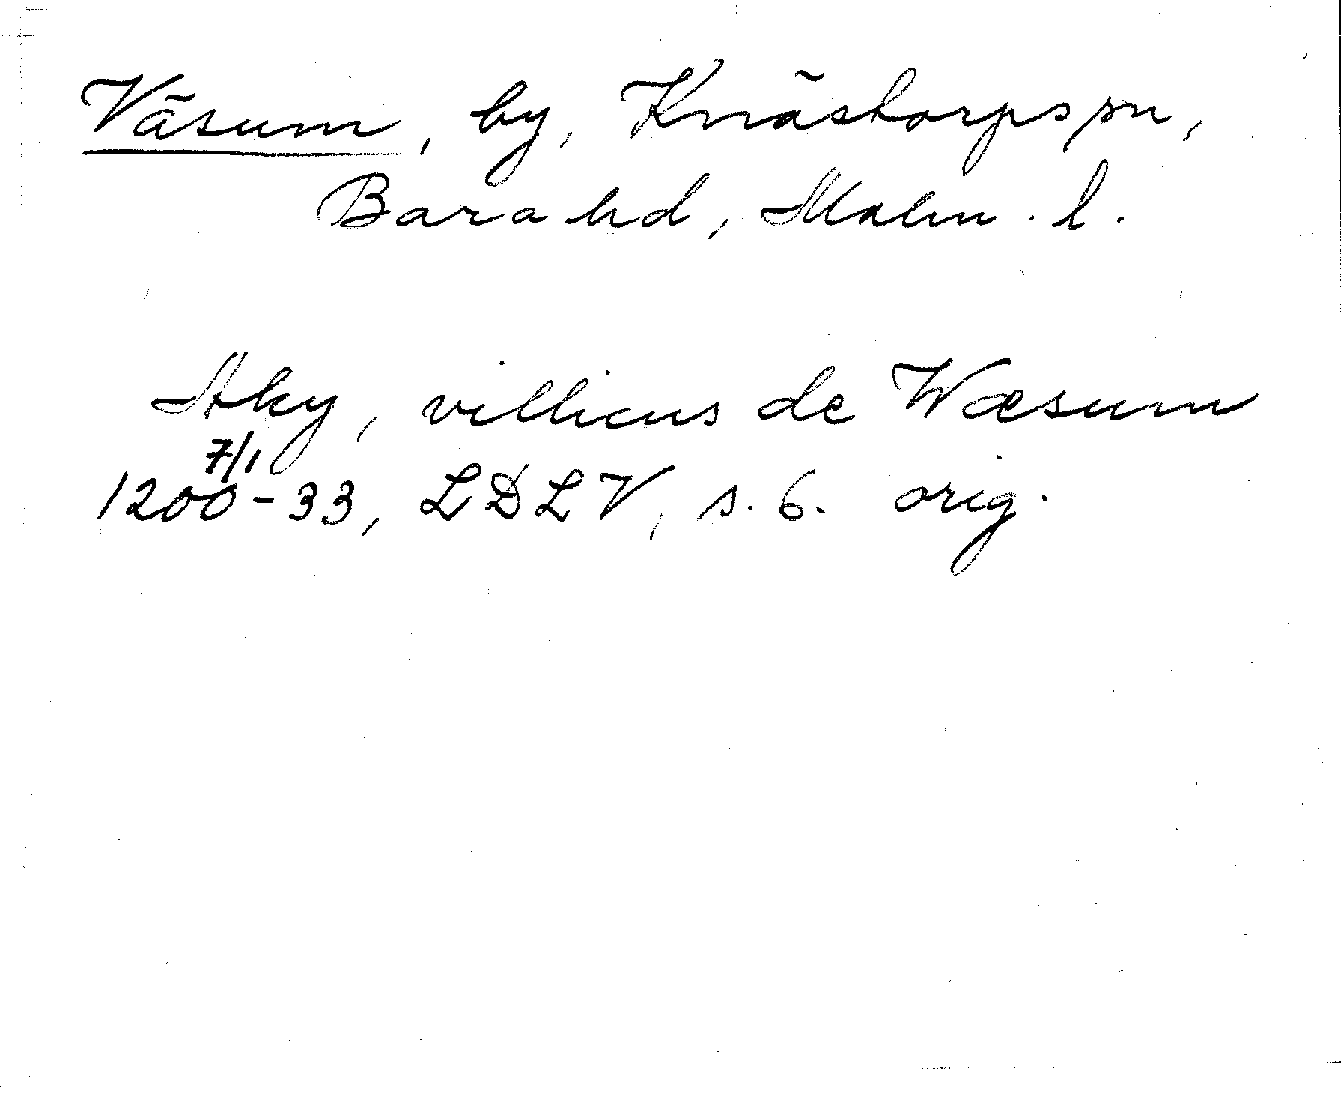 Väsum, by, Knästorps sn,
Bara hd, Malm. l.
Aky, villicus de Wæsum
7/1
1200-33, LDLV, s. 6. orig.